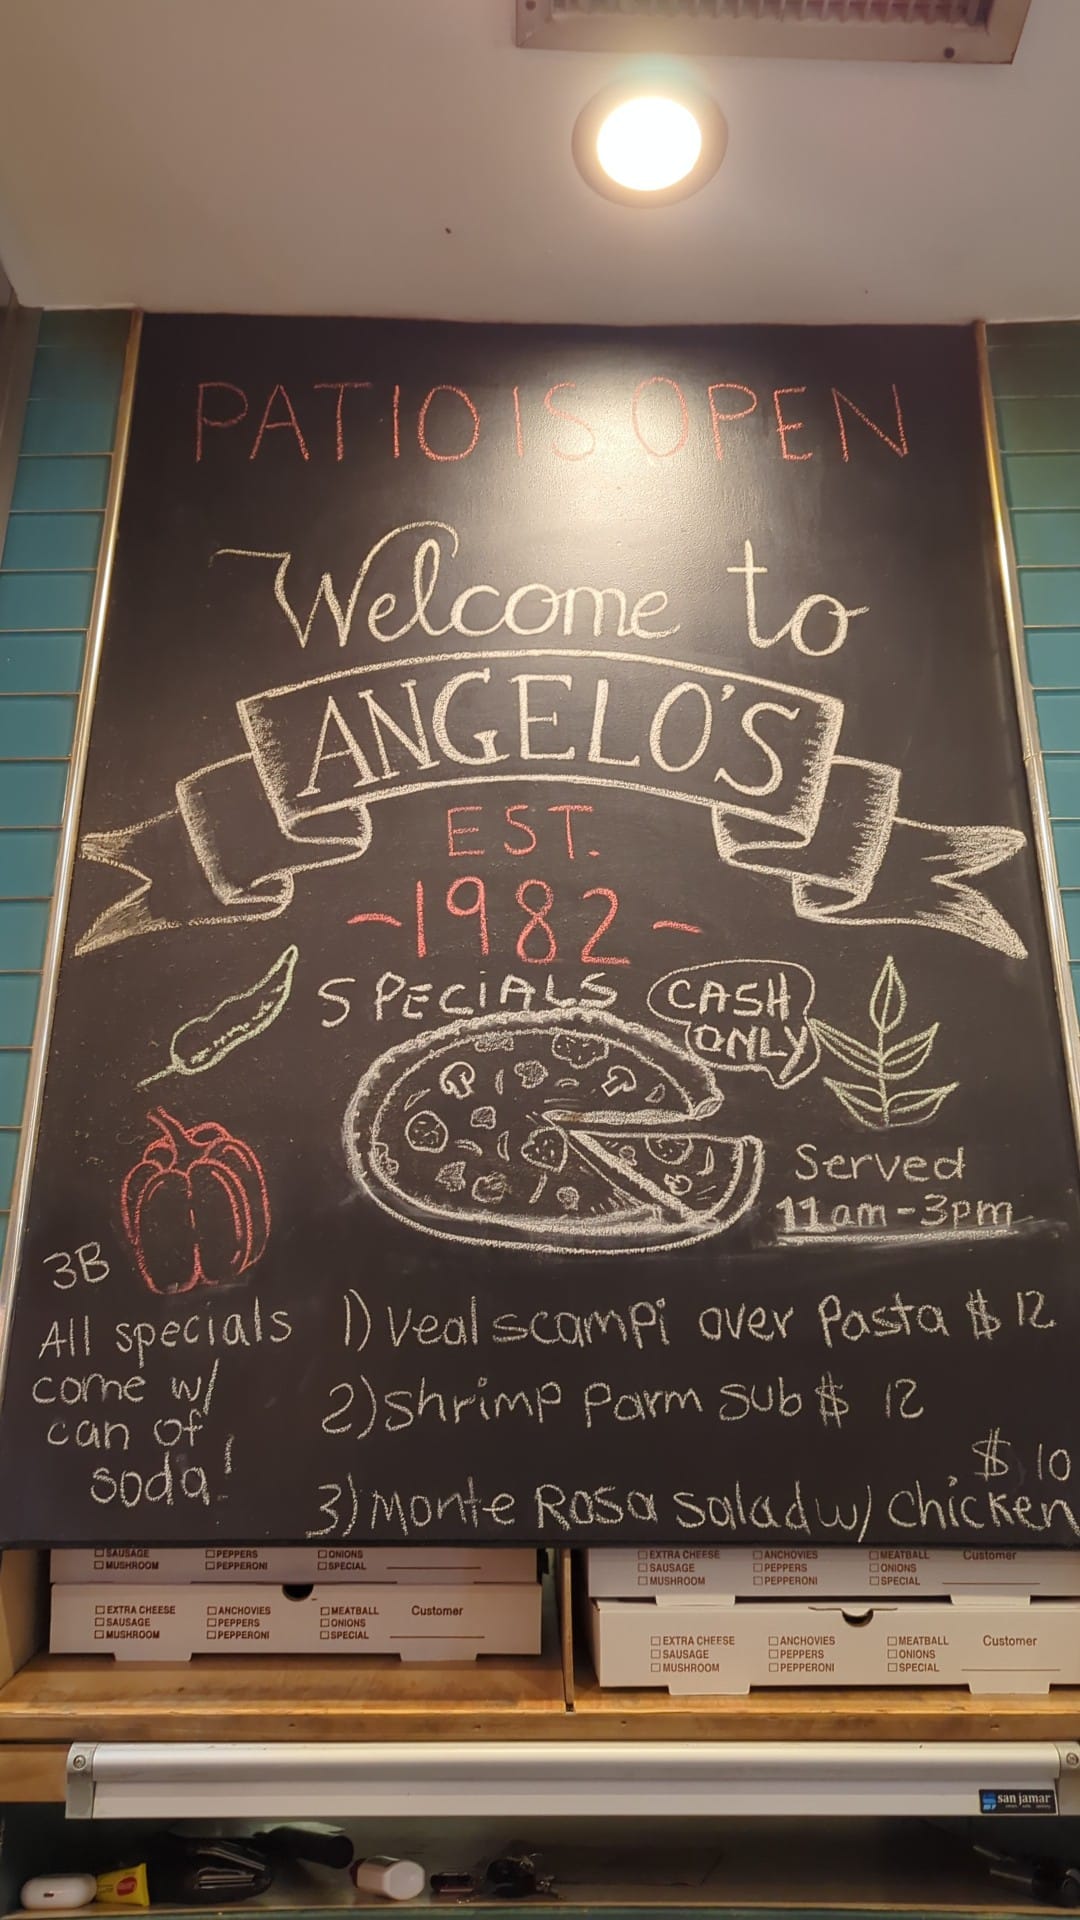 PATIO IS OPEN
Welcome to
ANGELO'S
EST.
-1982-
SPECIALS
CASH
ONLY
Served
11am-3pm
3B
All specials
come w/
can of
soda!
1) Veal scampi over Pasta $12
2) shrimp parm sub $ 12
$10
3) Monte Rosa Salad w/ chicken
SAUSAGE PEPPERS ONIONS
MUSHROOM PEPPERONI SPECIAL
EXTRA CHEESE ANCHOVIES MEATBALL Customer
SAUSAGE PEPPERS ONIONS
MUSHROOM PEPPERONI SPECIAL
EXTRA CHEESE ANCHOVIES MEATBALL Customer
SAUSAGE PEPPERS ONIONS
MUSHROOM PEPPERONI SPECIAL
EXTRA CHEESE ANCHOVIES MEATBALL Customer
SAUSAGE PEPPERS ONIONS
MUSHROOM PEPPERONI SPECIAL
san jamar